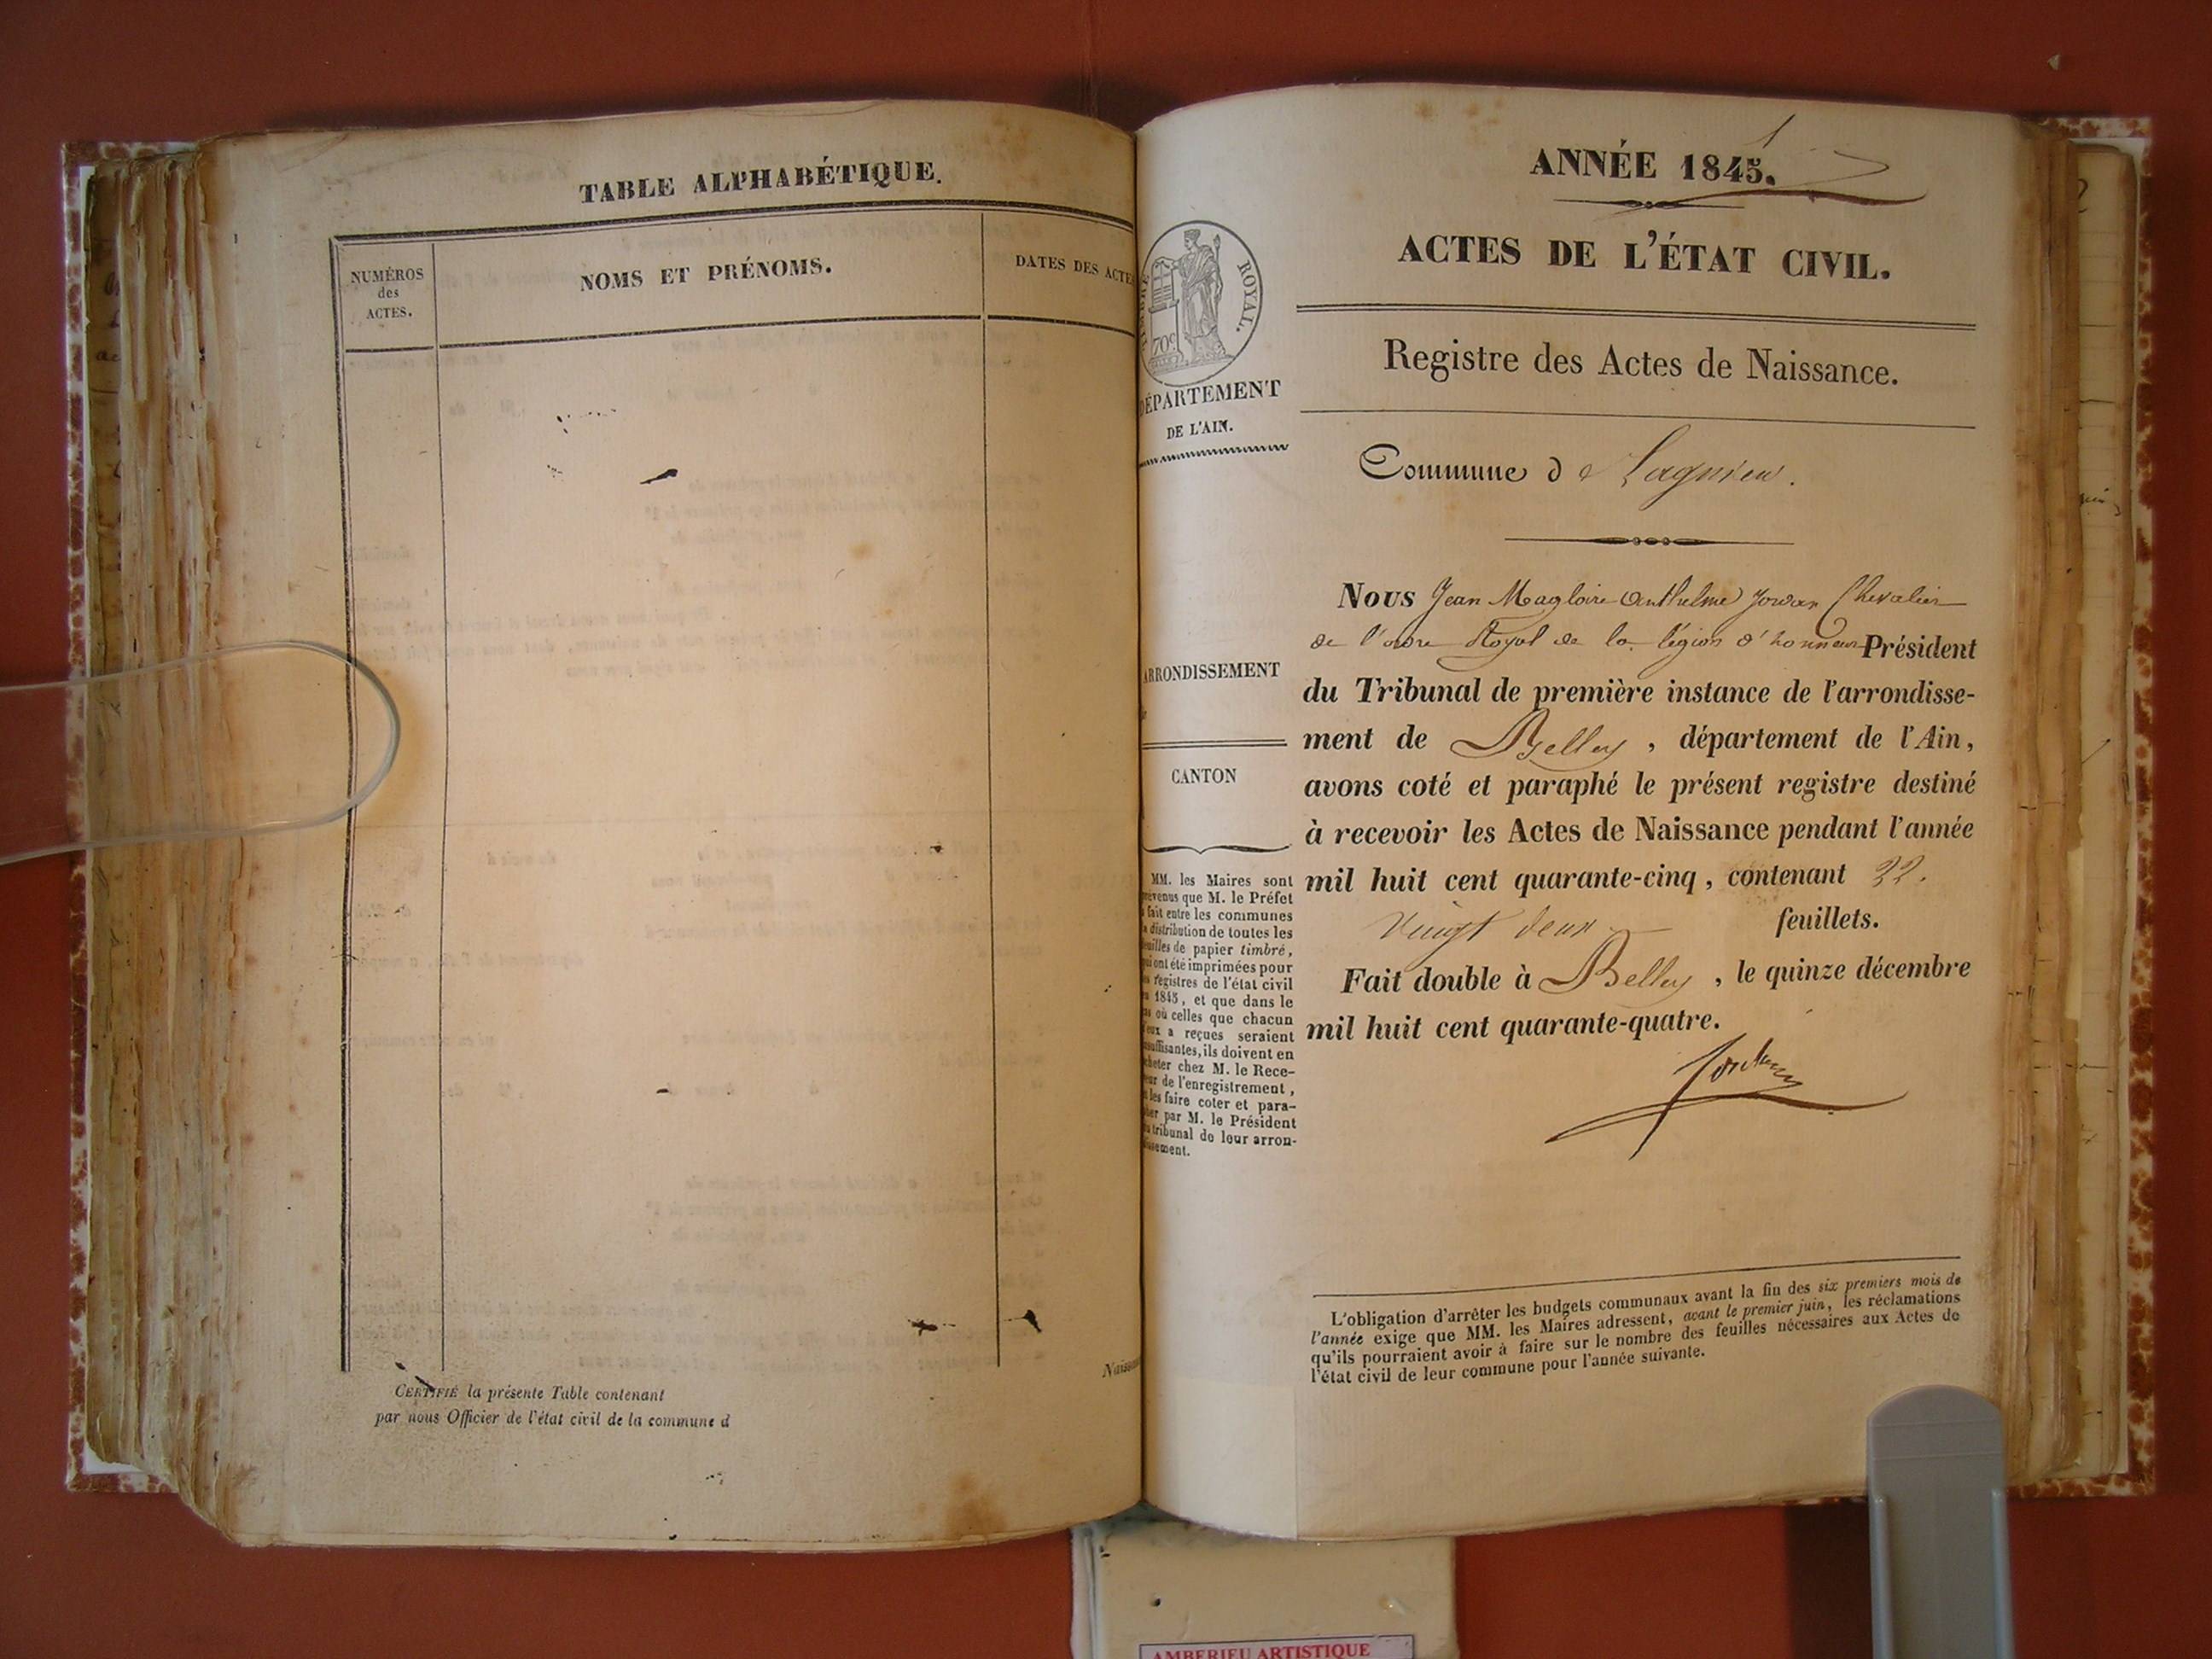 TABLE ALPHABÉTIQUE.
NUMÉROS
des
ACTES.
NOMS ET PRÉNOMS.
DATES DES ACTE
CERTIFIÉ la présente Table contenant
par nous Officier de l'état civil de la commune d
Naiss
1
ANNÉE 1845.
ACTES DE L'ÉTAT CIVIL.
TIMBRE ROYAL.
70c
DÉPARTEMENT
DE L'AIN.
Registre des Actes de Naissance.
Commune de Lagnieu.
Nous Jean Magloire Anthelme Jordan Chevalier
de l'ordre Royal de la légion d'honneur Président
du Tribunal de première instance de l'arrondisse-
ment de Belley, département de l'Ain,
avons coté et paraphé le présent registre destiné
à recevoir les Actes de Naissance pendant l'année
mil huit cent quarante-cinq, contenant 22.
vingt deux feuillets.
Fait double à Belley, le quinze décembre
mil huit cent quarante-quatre.
Jordan
ARRONDISSEMENT
CANTON
MM. les Maires sont
évenus que M. le Préfet
fait entre les communes
distribution de toutes les
euilles de papier timbré,
ui ont été imprimées pour
s registres de l'état civil
1845, et que dans le
s où celles que chacun
eux a reçues seraient
suffisantes, ils doivent en
heter chez M. le Rece-
ur de l'enregistrement,
les faire coter et para-
her par M. le Président
u tribunal de leur arron-
issement.
L'obligation d'arrêter les budgets communaux avant la fin des six premiers mois de
l'année exige que MM. les Maires adressent, avant le premier juin, les réclamations
qu'ils pourraient avoir à faire sur le nombre des feuilles nécessaires aux Actes de
l'état civil de leur commune pour l'année suivante.
AMBERIEU ARTISTIQUE